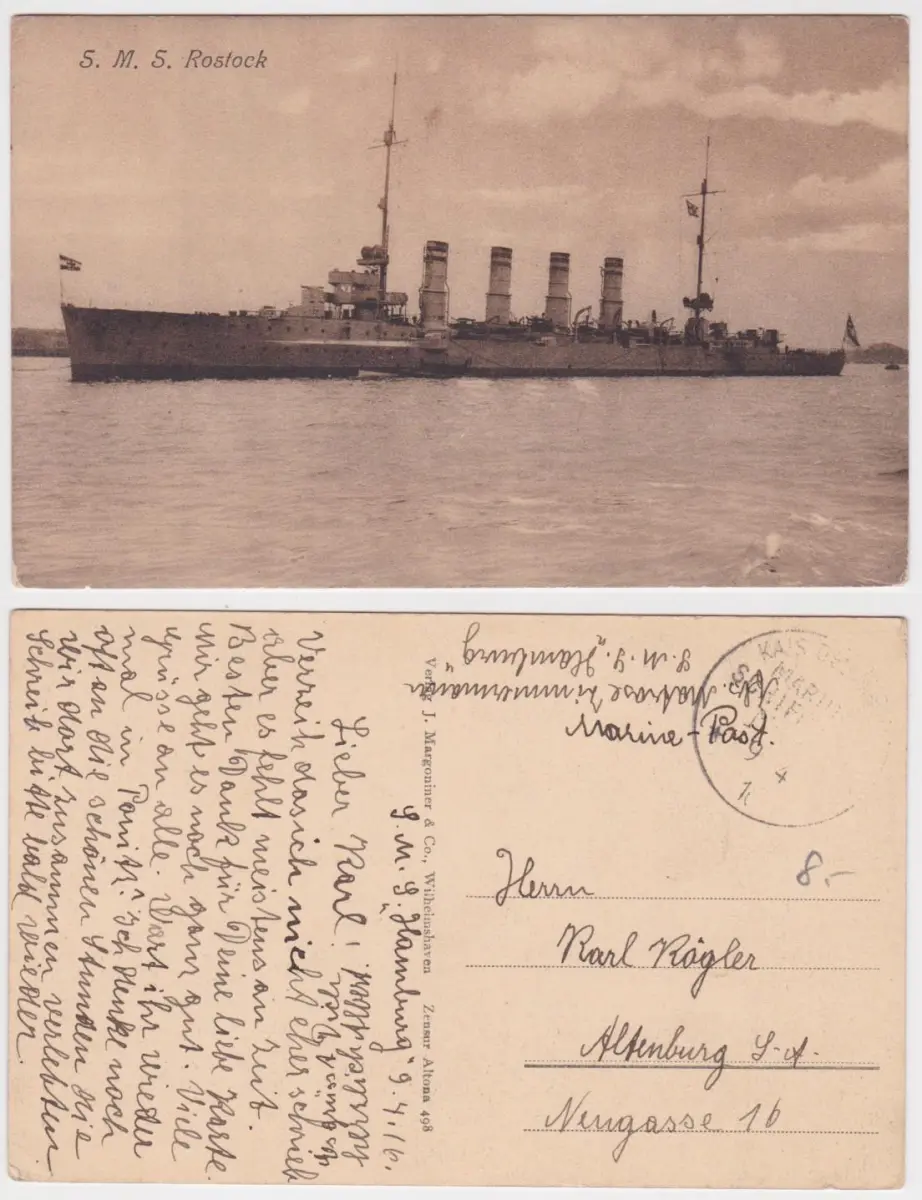 S. M. S. Rostock
S.M.S. „Hamburg" 9.4.16.
Lieber Karl!
Verzeih das ich nicht eher schrieb
aber es fehlt meistens an Zeit.
Besten Dank für Deine liebe Karte.
Mir geht es noch ganz gut. Viele
Grüsse an alle. Wart ihr wieder
mal in Ponitz? ich denke noch
oft an die schönen Stunden die
wir dort zusammen verlebten
Schreib bitte bald wieder.
Verlag J. Margoniner & Co., Wilhelmshaven Zensur Altona 498
Matrose Zimmermann
S.M.S. „Hamburg"
Marine-Post.
KAIS
MARINE
8.-
Herrn
Karl Kögler
Altenburg S.-A.
Neugasse 16